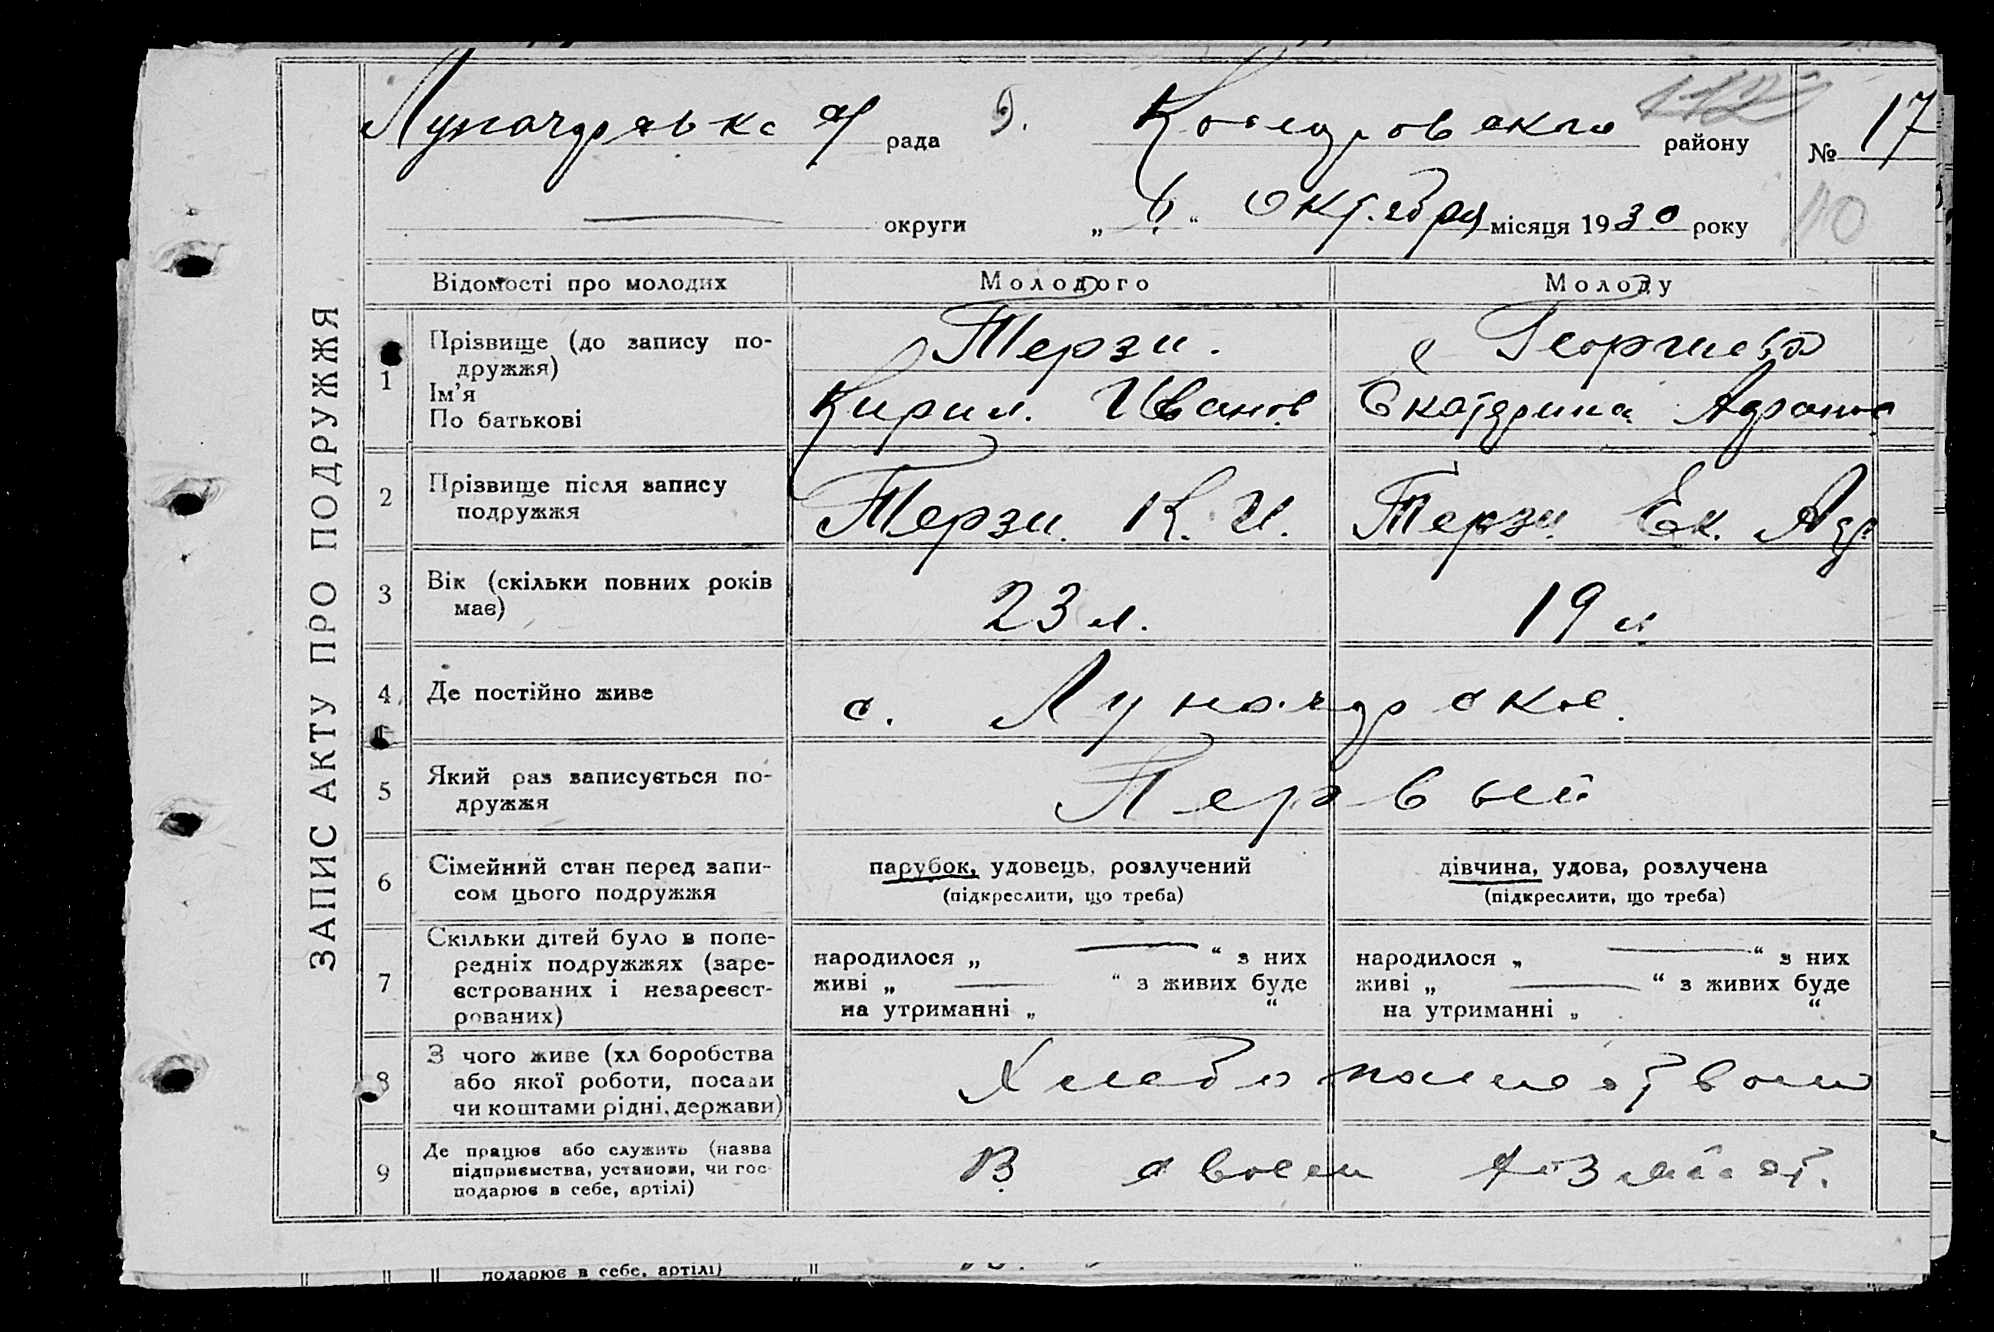 ЗАПИС АКТУ ПРО ПОДРУЖЖЯ
рада району № 17
округи „6“ Октября місяця 1930 року
Відомості про молодих Молодого Молоду
1 Прізвище (до запису по-
дружжя)
Ім'я
По батькові
Терзи. Георгиева
Кирил. Иванов Екатерина
2 Прізвище після запису
подружжя
Терзи. К. И. Терзи Ек. Адр
3 Вік (скільки повних років
має)
23 л. 19 л
4 Де постійно живе
с. Луначарское.
5 Який раз записується по-
дружжя
Первый
6 Сімейний стан перед запи-
сом цього подружжя
парубок, удовець, розлучений
(підкреслити, що треба)
дівчина, удова, розлучена
(підкреслити, що треба)
7 Скільки дітей було в попе-
редніх подружжях (заре-
єстрованих і незареєст-
рованих)
народилося „ — “ з них
живі „ — “ з живих буде
на утриманні „ “
народилося „ — “ з них
живі „ — “ з живих буде
на утриманні „ “
8 З чого живе (хл боробства
або якої роботи, посади
чи коштами рідні, держави)
Хлебопашеством
9 Де працює або служить (назва
підприємства, установи, чи гос-
подарює в себе, артілі)
В своем хозяйст.
подарює в себе, артілі)